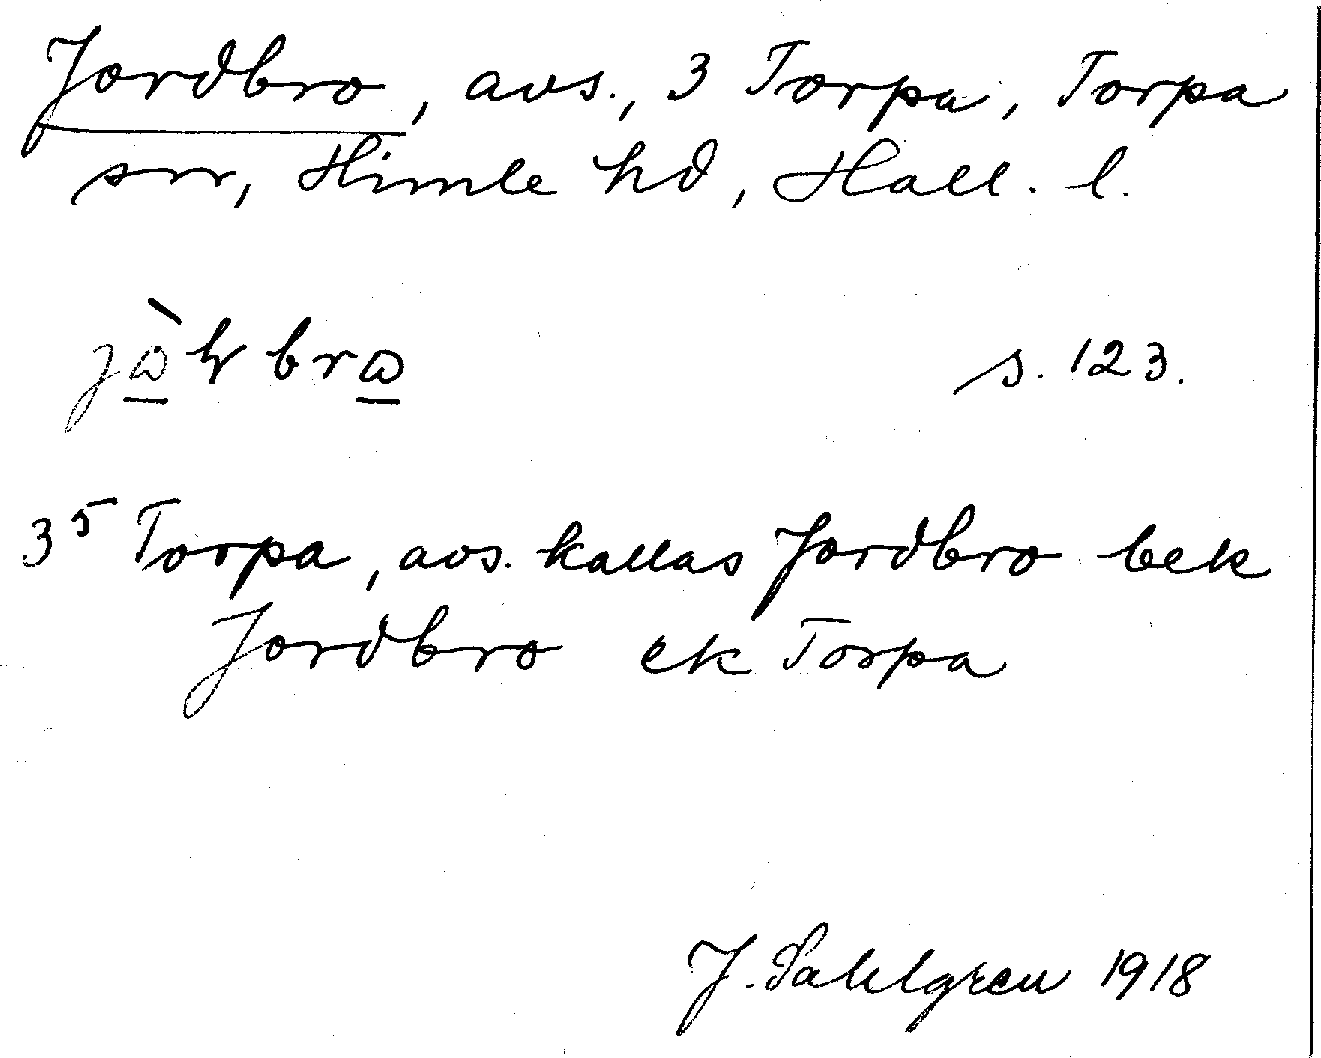 Jordbro, avs., 3 Torpa, Torpa
sn, Himle hd, Hall. l.
s. 123.
3⁵ Torpa, avs. kallas Jordbro bek
Jordbro ek Torpa
J. Sahlgren 1918